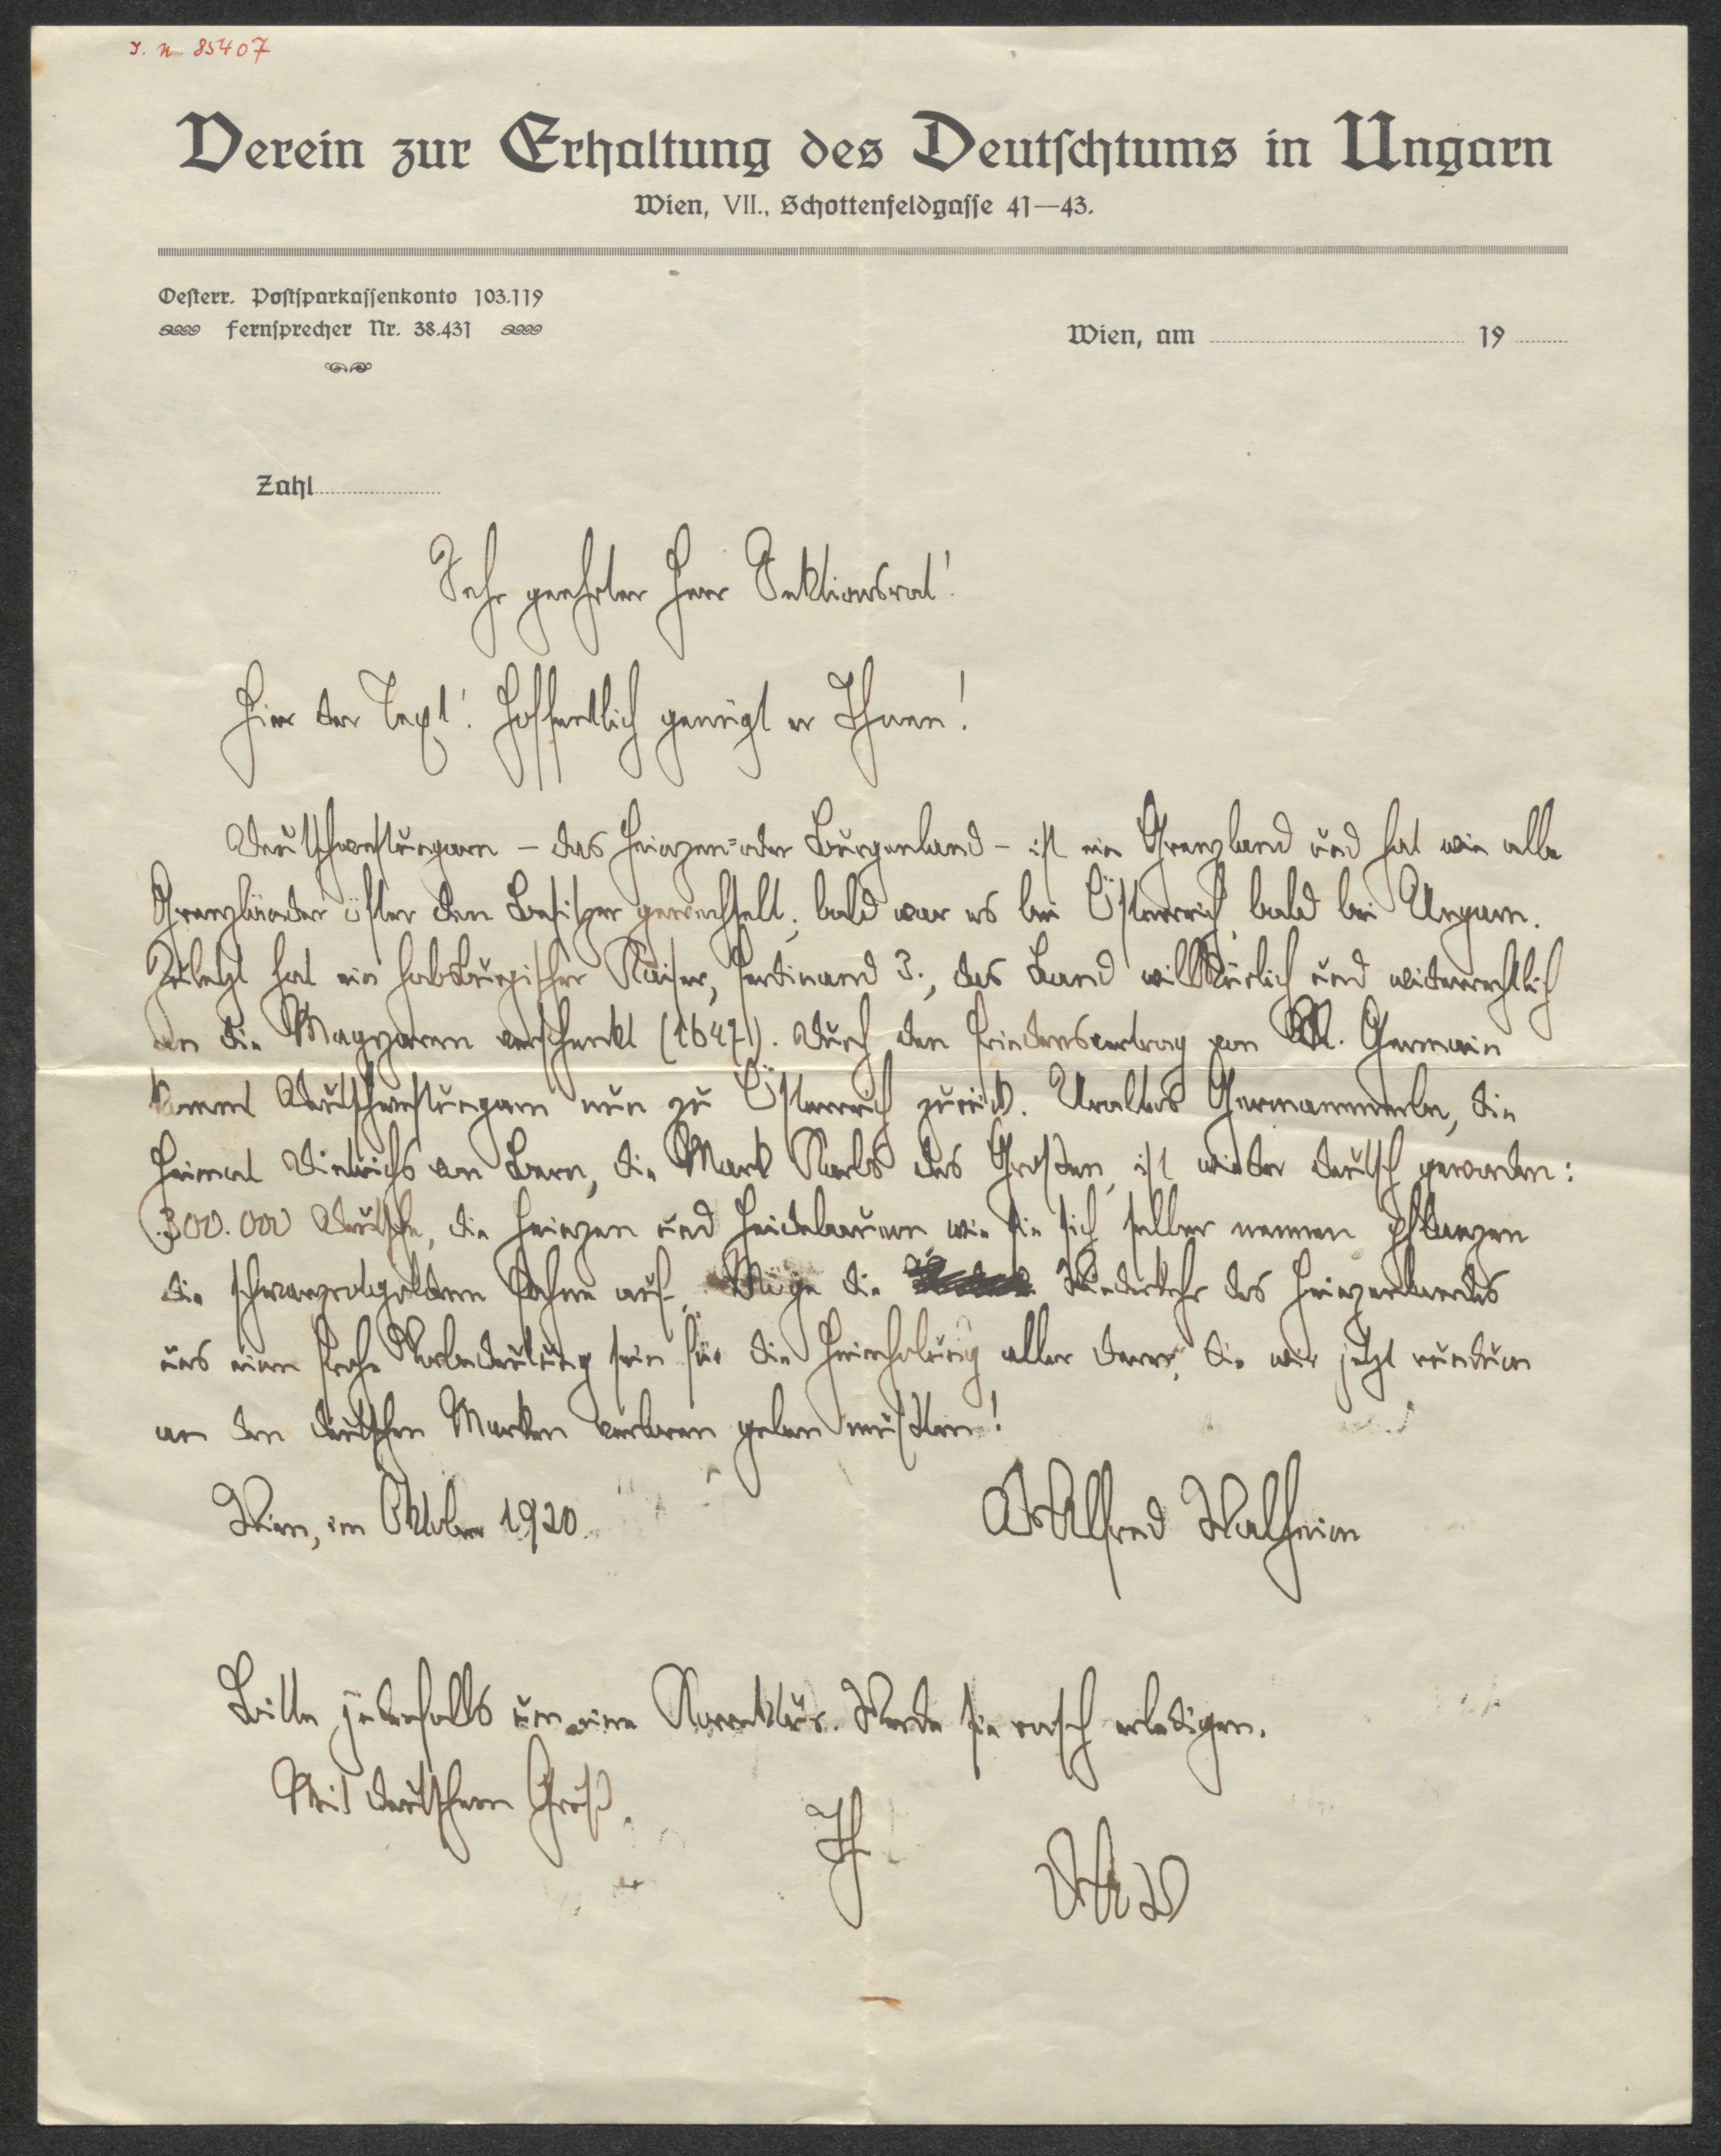 J. N. 85407
Verein zur Erhaltung des Deutſchtums in Ungarn
Wien, VII., Schottenfeldgaſſe 41—43.
Oeſterr. Poſtſparkaſſenkonto 103.119
Fernſprecher Nr. 38.431
Wien, am 19
Zahl
Sehr geehrter Herr Sektionsrat!
Hier der Text! Hoffentlich genügt er Ihnen!
Deutschwestungarn – das Heinzen= oder Burgenland – ist ein Grenzland und hat wie alle
Grenzländer öfter den Besitzer gewechselt; bald war es bei Österreich, bald bei Ungarn.
Zuletzt hat ein habsburgischer Kaiser, Ferdinand 3., das Land willkürlich und widerrechtlich
an die Magyaren verschenkt (1647). Durch den Friedensvertrag von St. Germain
kommt Deutschwestungarn nun zu Österreich zurück. Uraltes Germanenerbe, die
Heimat Dietrichs von Bern, die Mark Karls des Großen, ist wieder deutsch geworden:
300.000 Deutsche, die Heinzen und Heidebauern wie sie sich selber nennen pflanzen
die schwarzrotgoldene Fahne auf. Möge die Wiederkehr des Heinzenlandes
uns eine frohe Vorbedeutung sein für die Heimholung aller derer, die wir jetzt rundum
an den deutschen Marken verloren geben mußten!
Wien, im Oktober 1920.
Dr Alfred Walheim
Bitte jedenfalls um eine Korrektur. Werde sie rasch erledigen.
Mit deutschem Gruß
Ihr
Dr A W